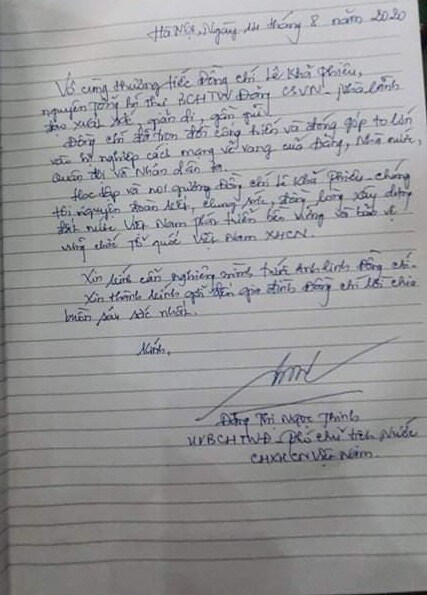 Hà Nội, Ngày 14 tháng 8 năm 2020
Vô cùng thương tiếc Đồng chí Lê Khả Phiêu,
nguyên Tổng Bí thư BCHTW Đảng CSVN - nhà lãnh
đạo xuất sắc, giản dị, gần gũi.
Đồng chí đã trọn đời cống hiến và đóng góp to lớn
vào sự nghiệp cách mạng vẻ vang của Đảng, Nhà nước,
Quân đội và Nhân dân ta.
Học tập và noi gương Đồng chí Lê Khả Phiêu - chúng
tôi nguyện đoàn kết, chung sức, đồng lòng xây dựng
đất nước Việt Nam phát triển bền vững và bảo vệ
vững chắc Tổ quốc Việt Nam XHCN.
Xin kính cẩn nghiêng mình trước Anh linh Đồng chí.
Xin thành kính gửi đến gia đình Đồng chí lời chia
buồn sâu sắc nhất.
Kính.
Đặng Thị Ngọc Thịnh
UVBCHTWĐ - Phó Chủ tịch Nước
CHXHCN Việt Nam.